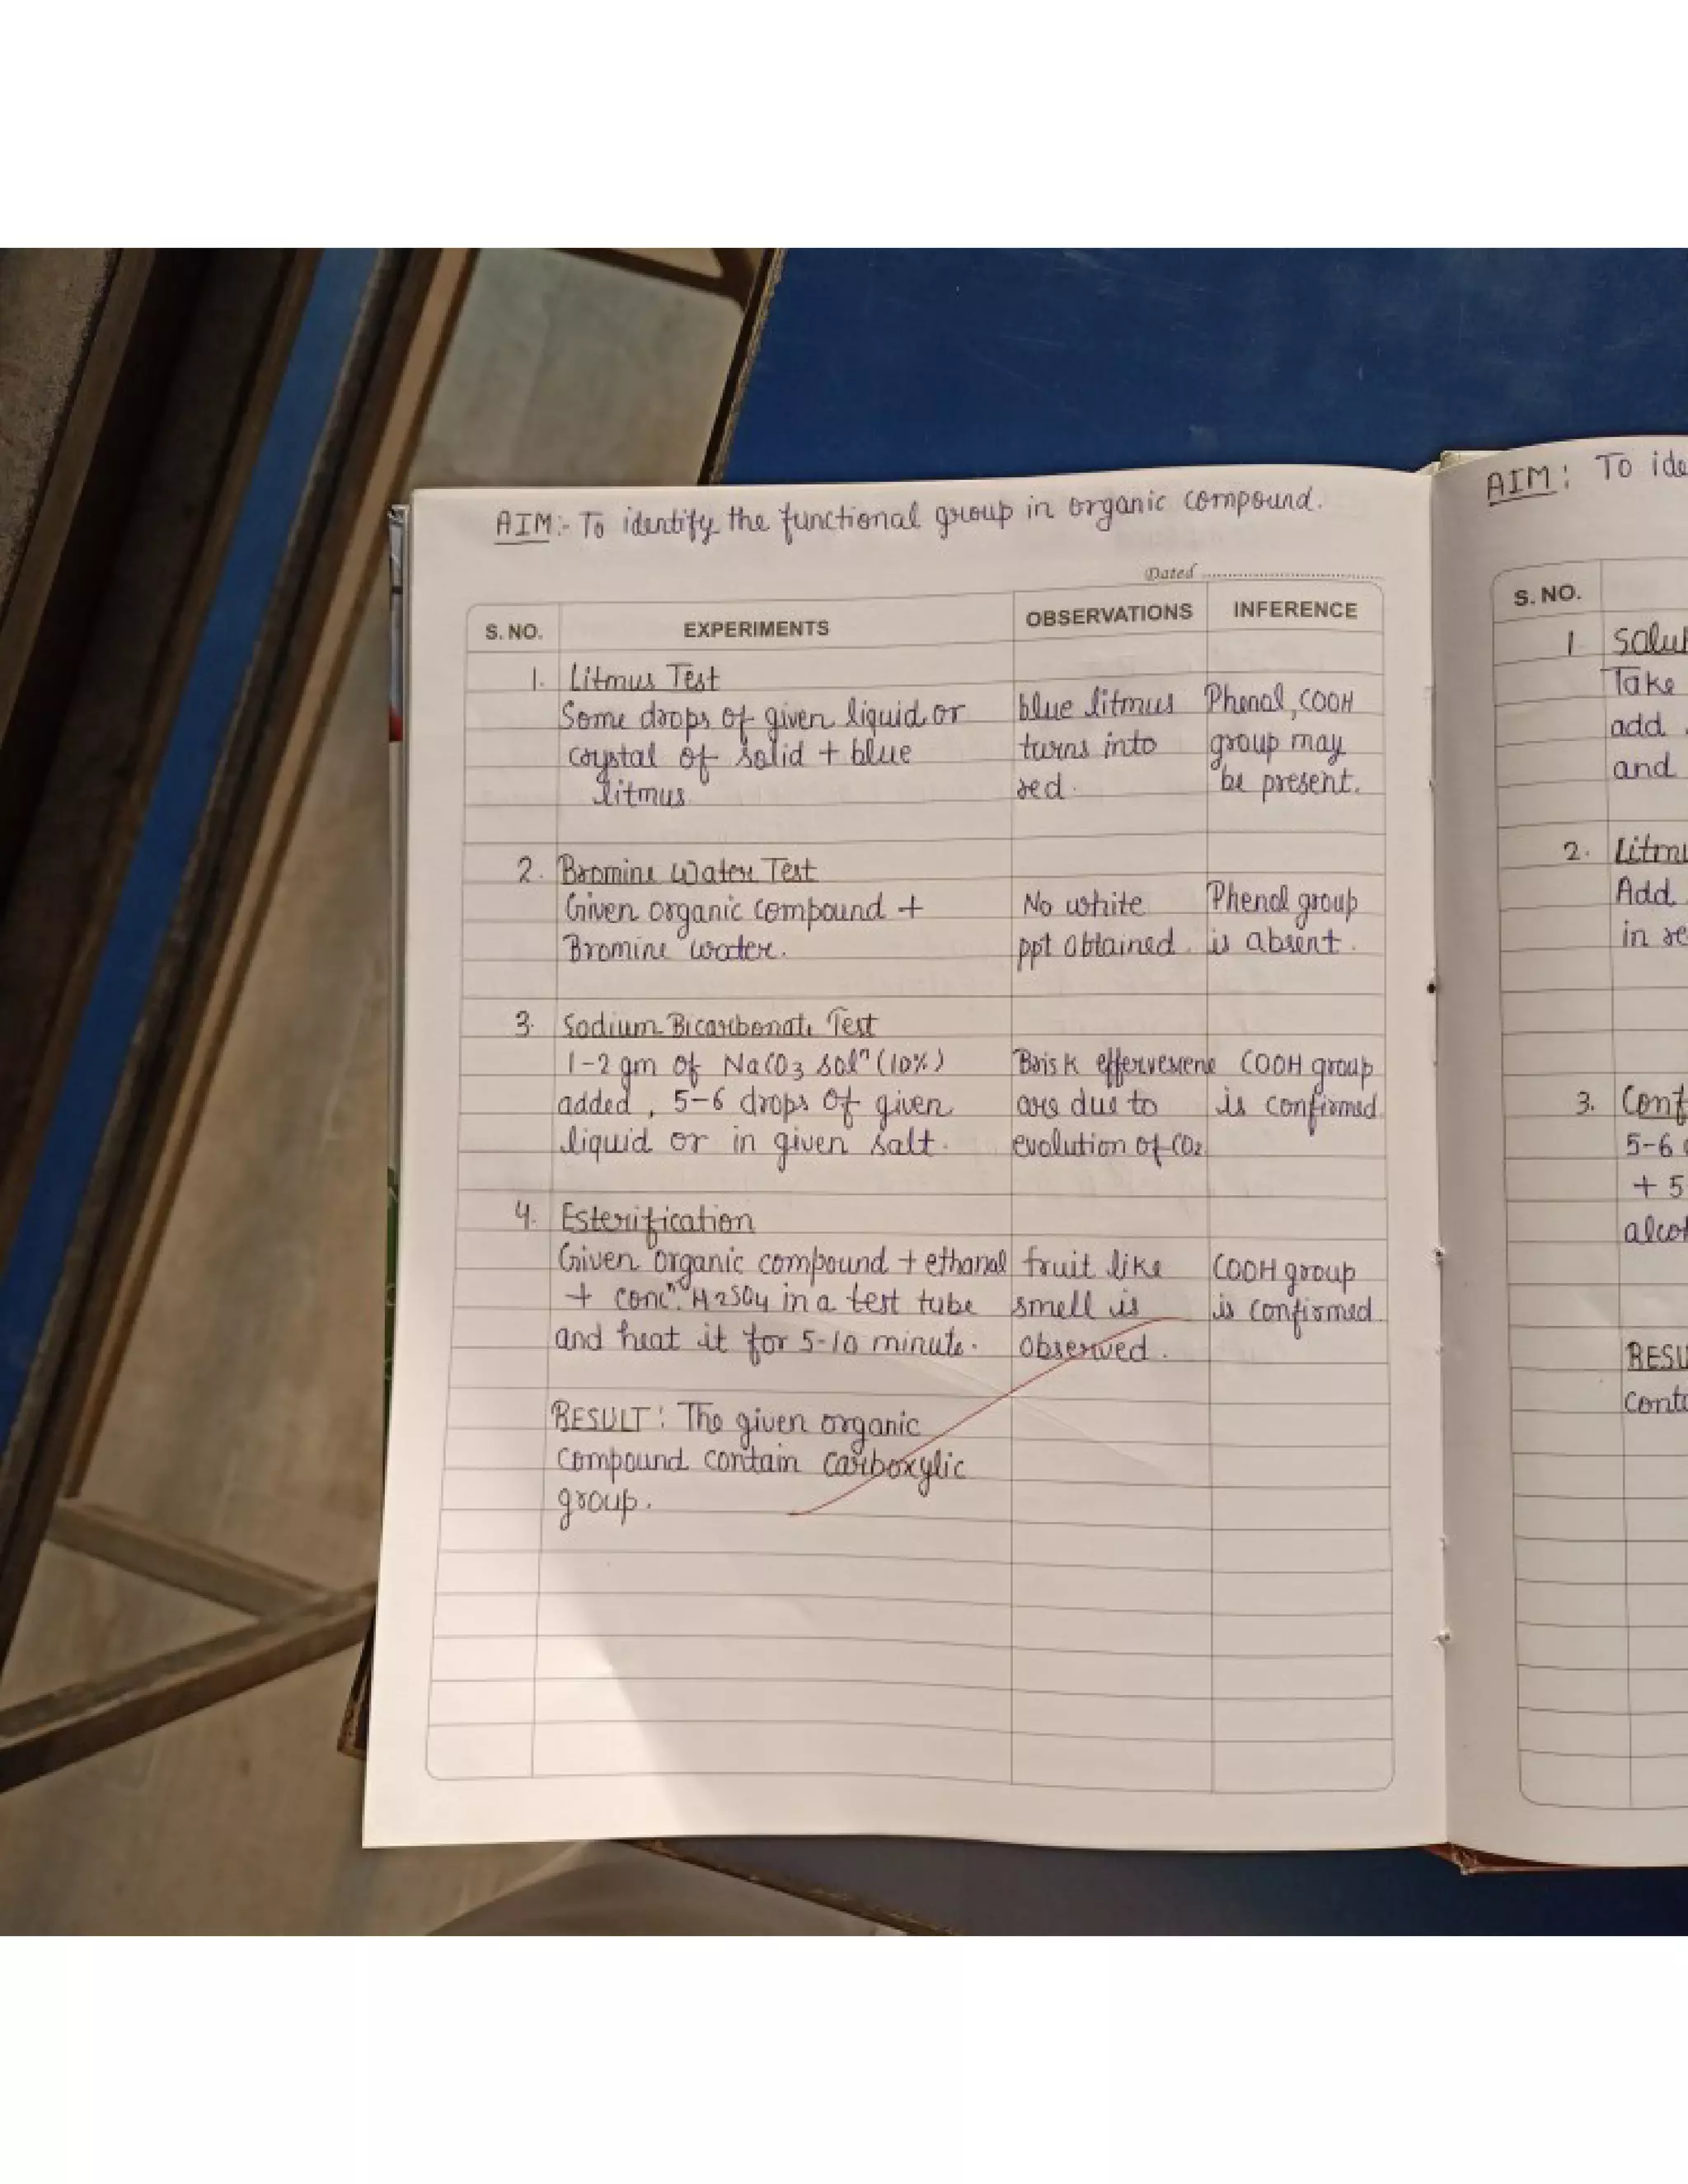 AIM:- To identify the functional group in organic compound.
Dated
S. NO. EXPERIMENTS OBSERVATIONS INFERENCE
1. Litmus Test
Some drops of given liquid or blue litmus Phenol, COOH
crystal of solid + blue turns into group may
litmus red. be present.
2. Bromine Water Test
Given organic compound + No white Phenol group
Bromine water. ppt obtained. is absent.
3. Sodium Bicarbonate Test
1-2 gm of NaCO3 solⁿ (10%) Brisk effervescene COOH group
added, 5-6 drops of given are due to is confirmed
liquid or in given salt. evolution of CO2
4. Esterification
Given organic compound + ethanol fruit like COOH group
+ concⁿ. H2SO4 in a test tube smell is is confirmed.
and heat it for 5-10 minute. observed.
RESULT: The given organic
compound contain carboxylic
group.
AIM: To ide
S. NO.
1. Solu
Take
add
and
2. Litmu
Add
in re
3. Conf
5-6
+ 5
alcoh
RESU
Conta